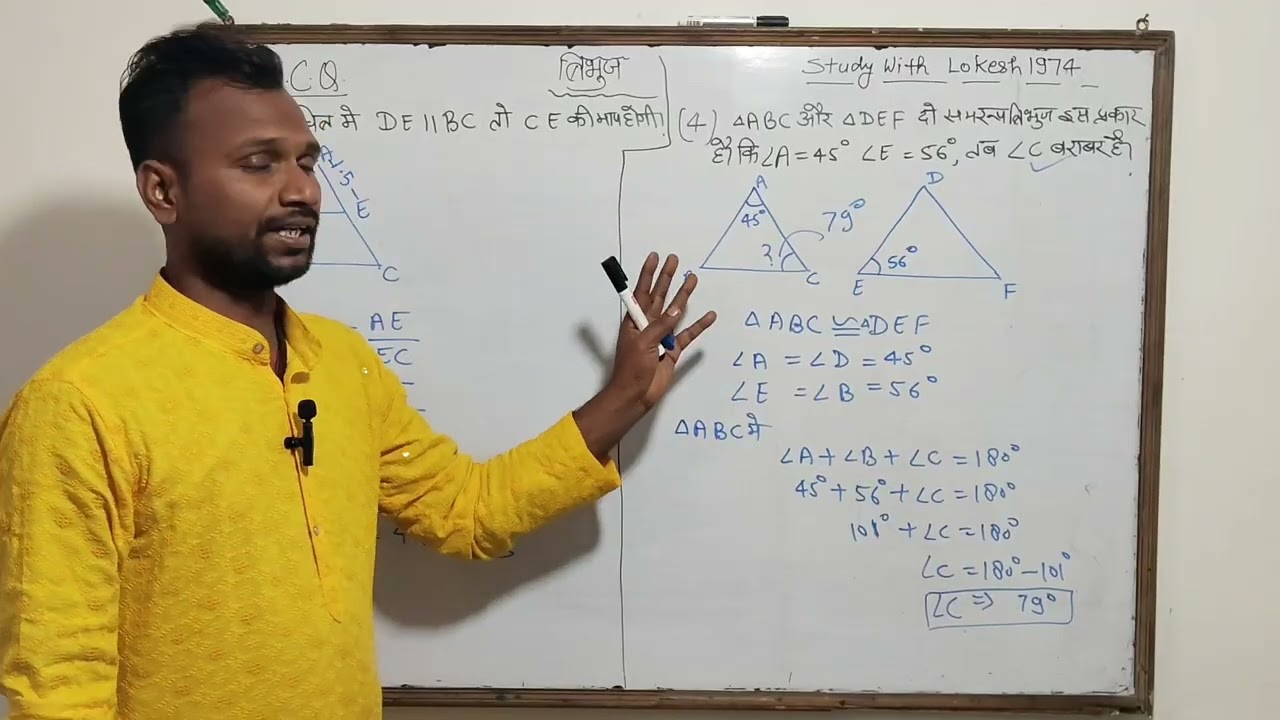 C.Q.
त्रिभुज
Study With Lokesh 1974
में DE || BC तो CE की माप होगी।
A
1.5
E
C
AE
EC
(4) △ABC और △DEF दो समरूप त्रिभुज इस प्रकार
है कि ∠A = 45° ∠E = 56°, तब ∠C बराबर है।
A
45°
?
79°
C
D
E
56°
F
△ABC ≌ △DEF
∠A = ∠D = 45°
∠E = ∠B = 56°
△ABC में
∠A + ∠B + ∠C = 180°
45° + 56° + ∠C = 180°
101° + ∠C = 180°
∠C = 180° - 101°
∠C ⇒ 79°